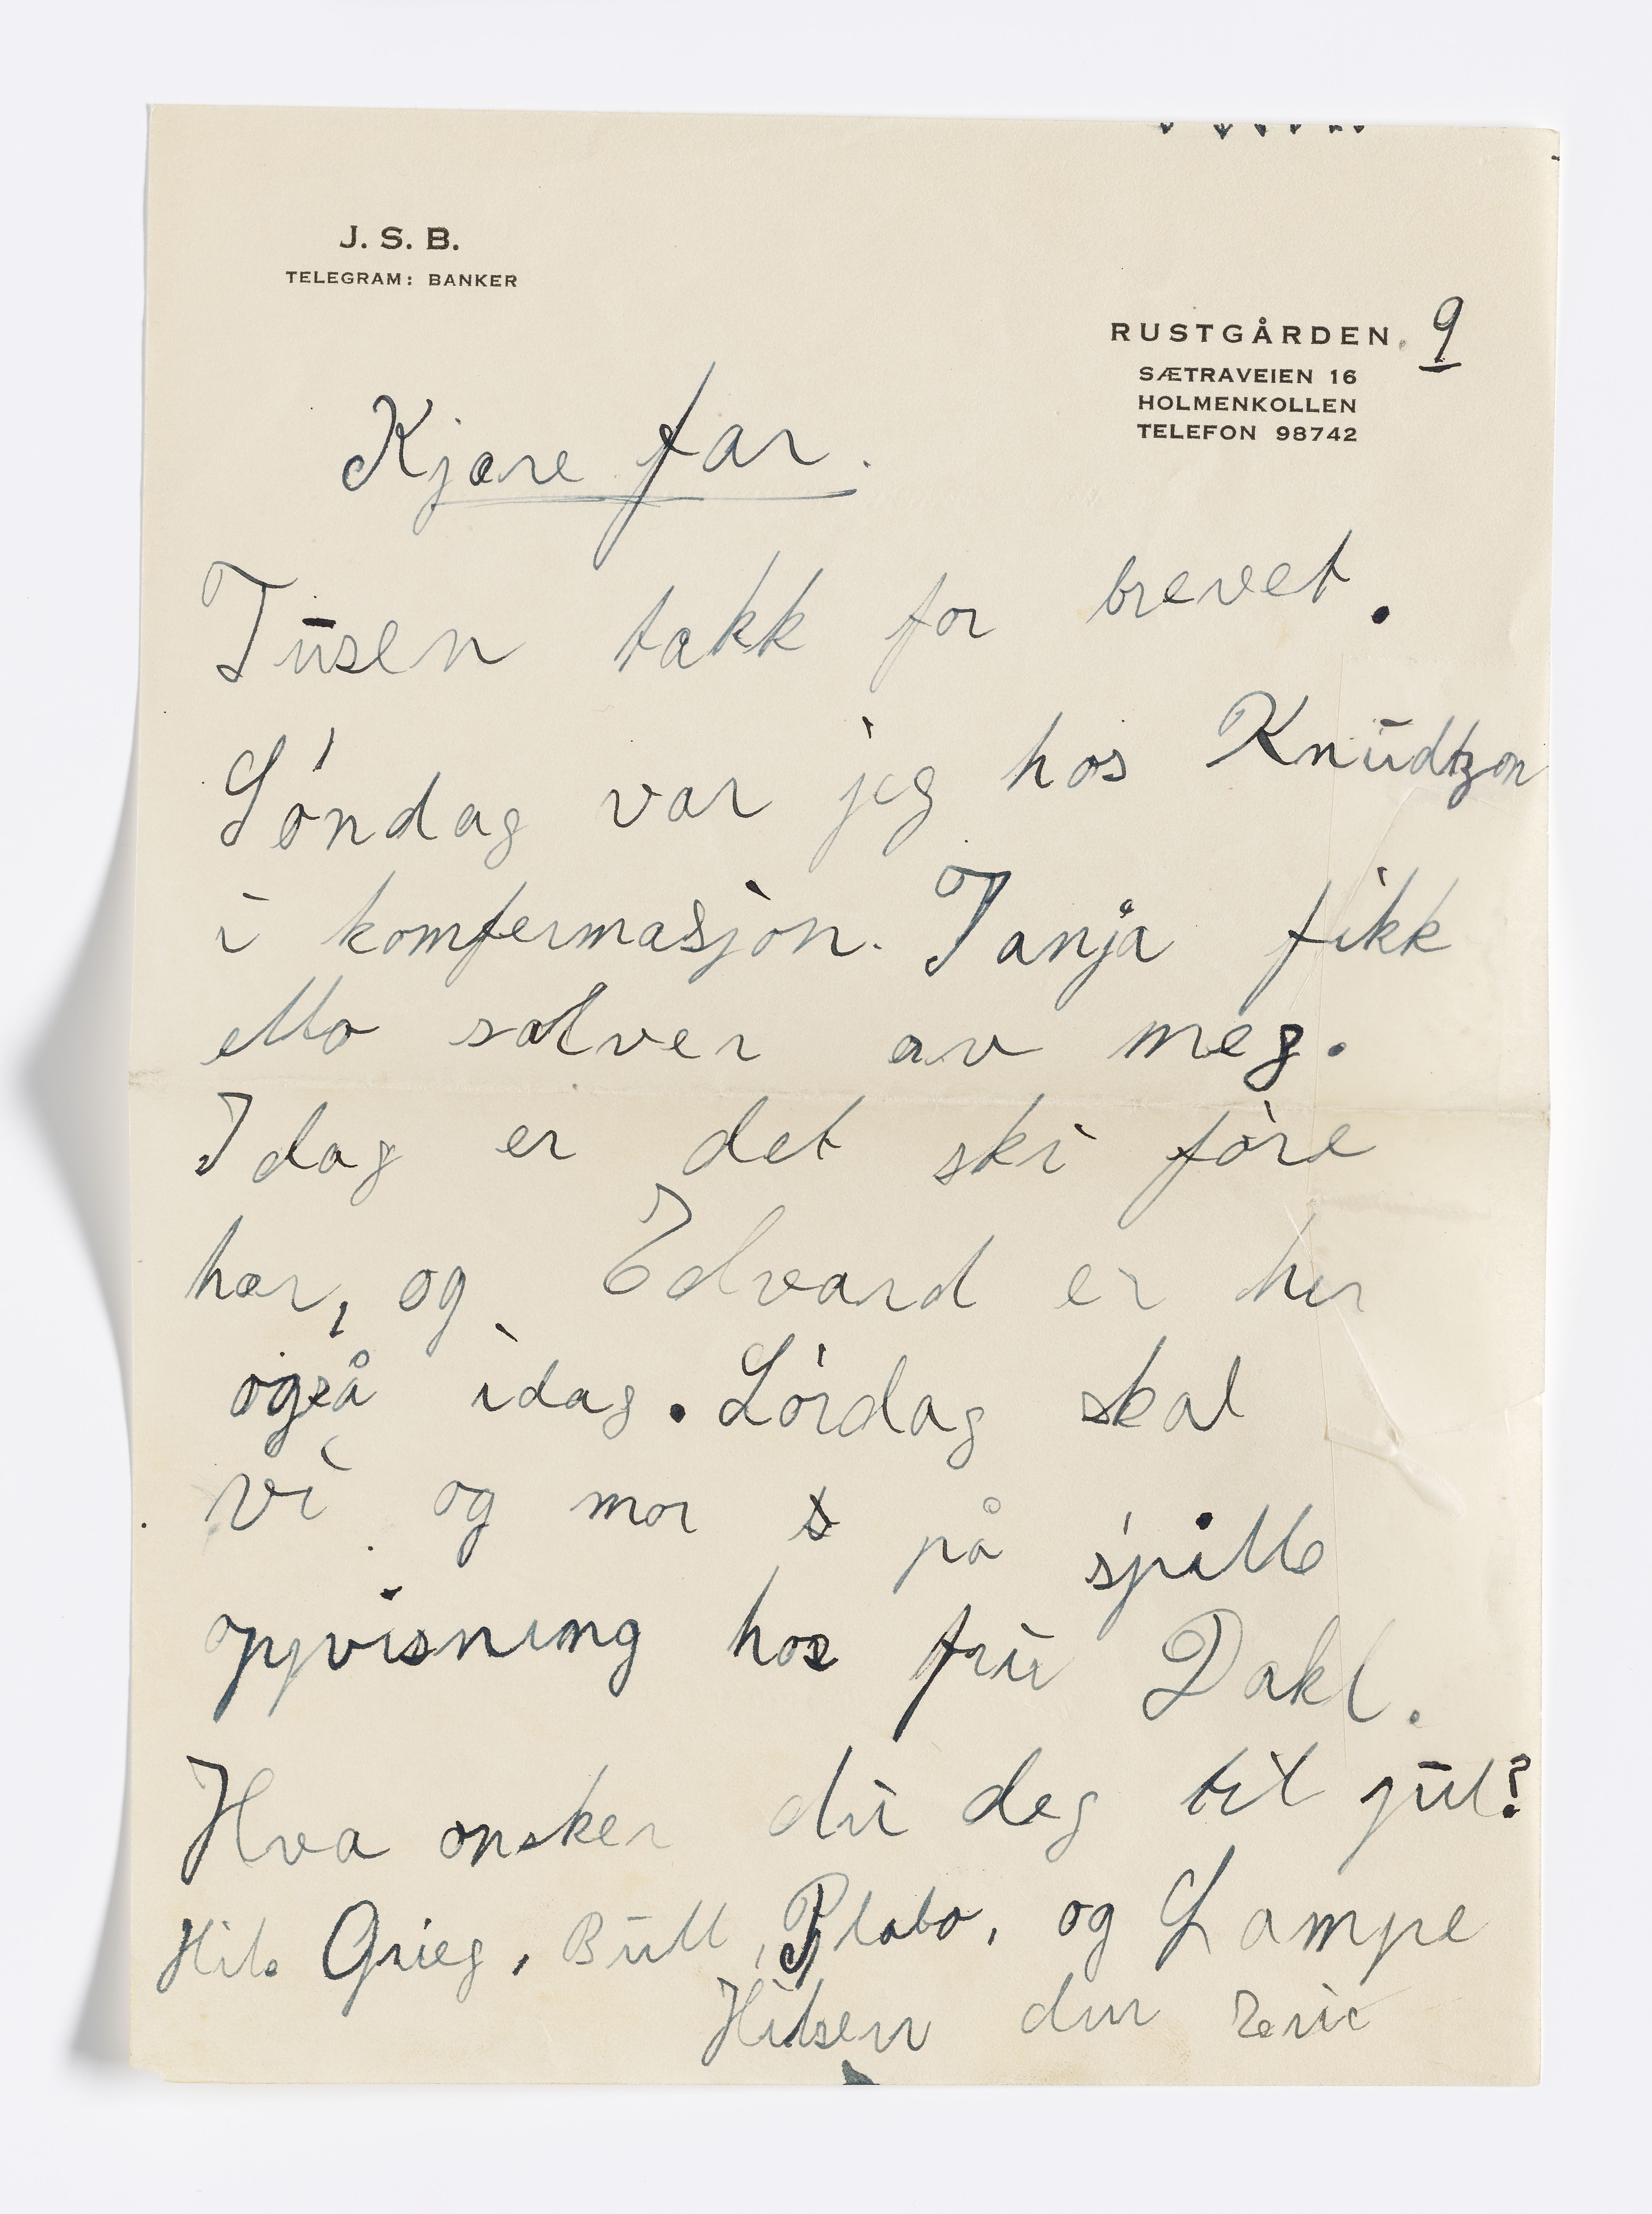 J. S. B.
TELEGRAM: BANKER
RUSTGÅRDEN. 9
SÆTRAVEIEN 16
HOLMENKOLLEN
TELEFON 98742
Kjære far.
Tusen takk for brevet.
Søndag var jeg hos Knudtzon
i komfermasjon. Tanja fikk
etto sølver av meg.
Idag er det ski føre
her, og Edvard er her
også idag. Lørdag skal
vi og mor på spille
oppvisning hos fru Dahl.
Hva ønsker du deg til jul?
Hils Grieg, Bull, Plato, og Lampe
Hilsen din